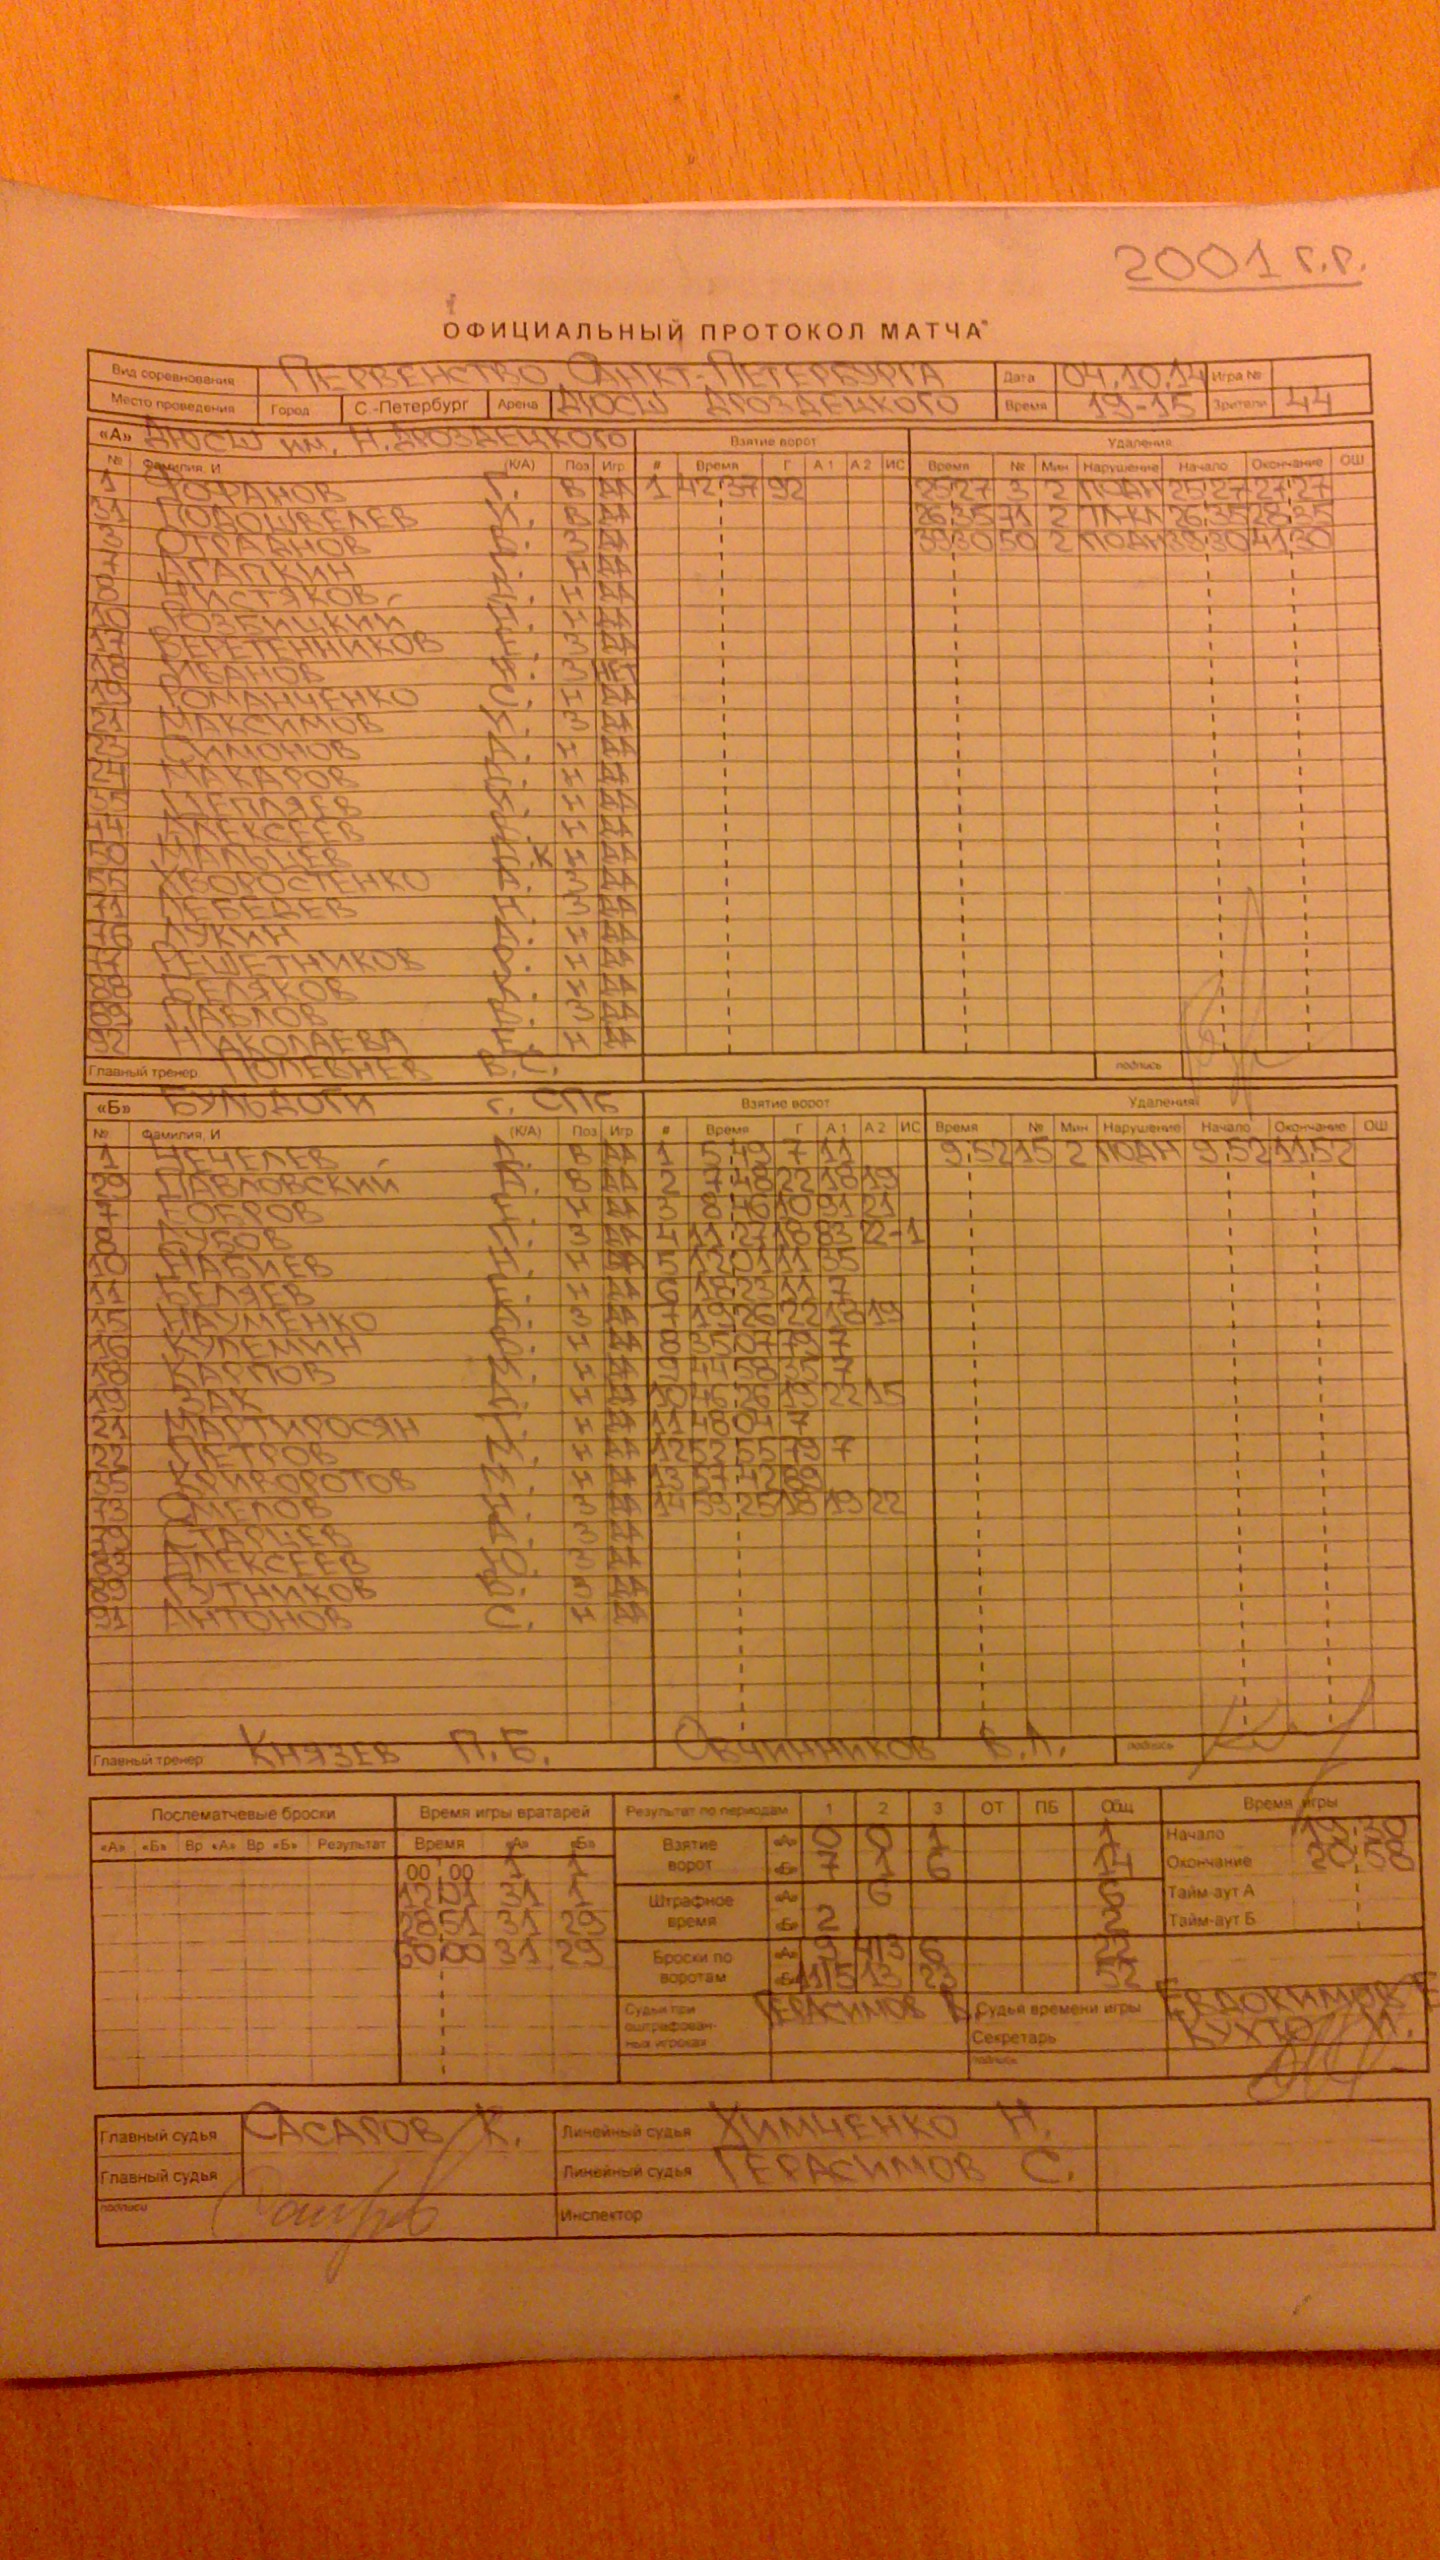 2001 г.р.
ОФИЦИАЛЬНЫЙ ПРОТОКОЛ МАТЧА
Вид соревнования ПЕРВЕНСТВО САНКТ-ПЕТЕРБУРГА Дата 04.10.14 Игра №
Место проведения Город С.-Петербург Арена ДЮСШ ДРОЗДЕЦКОГО Время 19-15 Зрители 44
«А» ДЮСШ им. Н. ДРОЗДЕЦКОГО Взятие ворот Удаления
№ Фамилия, И (К/А) Поз Игр # Время Г А1 А2 ИС Время № Мин Нарушение Начало Окончание ОШ
1 ФОФАНОВ Г. В ДА 1 42:37 92 25:27 3 2 ПОДН 25:27 27:27
31 ПОДОШВЕЛЕВ И. В ДА 26:35 71 2 26:35 28:35
3 В. З ДА 39:30 50 2 ПОДН 39:30 41:30
7 АГАПКИН Н ДА
8 ЧИСТЯКОВ Н ДА
10 РОЗБИЦКИЙ Н ДА
17 ВЕРЕТЕННИКОВ Е. З ДА
18 ИВАНОВ З НЕТ
19 РОМАНЧЕНКО С. Н ДА
21 МАКСИМОВ З ДА
23 СИМОНОВ Н ДА
24 МАКАРОВ Н ДА
35 ШЕПЛЯЕВ Н ДА
44 АЛЕКСЕЕВ Н ДА
50 МАЛЬЦЕВ К Н ДА
55 ХВОРОСТЕНКО А. З ДА
71 ЛЕБЕДЕВ Н. З ДА
76 ЛУКИН Н ДА
77 РЕШЕТНИКОВ Н ДА
88 БЕЛЯКОВ Н ДА
89 ПАВЛОВ З ДА
92 НИКОЛАЕВА Е. Н ДА
Главный тренер ПОЛЕВНЕВ В.С. подпись
«Б» БУЛЬДОГИ г. СПБ Взятие ворот Удаления
№ Фамилия, И (К/А) Поз Игр # Время Г А1 А2 ИС Время № Мин Нарушение Начало Окончание ОШ
1 ЧЕЧЕЛЕВ В ДА 1 5:49 7 11 9:52 15 2 ПОДН 9:52 11:52
29 ПАВЛОВСКИЙ В ДА 2 7:48 22 18 19
7 БОБРОВ Н ДА 3 8:46 10 91 21
8 ЗУБОВ З ДА 4 11:27 18 83 22 -1
10 НАБИЕВ Н ДА 5 12:01 11 35
11 БЕЛЯЕВ Н ДА 6 18:23 11 7
15 НАУМЕНКО З ДА 7 19:26 22 18 19
16 КУЛЕМИН Н ДА 8 35:07 79 7
18 КАРПОВ Н ДА 9 44:58 35 7
19 ЗАК Н ДА 10 46:26 19 22 15
21 МАРТИРОСЯН Н ДА 11 48:04 7
22 ПЕТРОВ Н ДА 12 52:55 79 7
35 КРИВОРОТОВ Н ДА 13 57:42 89
73 СМЕЛОВ З ДА 14 59:25 18 19 22
79 СТАРЦЕВ З ДА
83 АЛЕКСЕЕВ Ю. З ДА
89 ГУТНИКОВ В. З ДА
91 АНТОНОВ С. Н ДА
Главный тренер КНЯЗЕВ П.Б. ОВЧИННИКОВ В.Л. подпись
Послематчевые броски Время игры вратарей Результат по периодам 1 2 3 ОТ ПБ Общ Время игры
«А» «Б» Вр «А» Вр «Б» Результат Время «А» «Б»
Взятие ворот «А» 0 0 1 1 Начало 19:30
00 00 1 1 «Б» 7 1 6 14 Окончание 20:58
12:01 31 1 Штрафное время «А» 6 6 Тайм-аут А
28:51 31 29 «Б» 2 2 Тайм-аут Б
60:00 31 29 Броски по воротам «А» 9 4/3 6 22
«Б» 11/5 13 23 52
Судьи при оштрафованных игроках ГЕРАСИМОВ Судья времени игры ЕВДОКИМОВ Е
Секретарь КУХТО И.
подпись
Главный судья САСАРОВ К. Линейный судья ХИМЧЕНКО Н.
Главный судья Линейный судья ГЕРАСИМОВ С.
подписи Инспектор